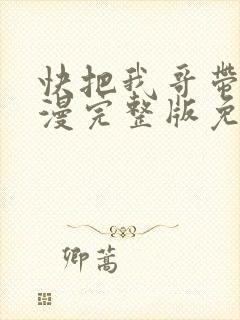 快把我哥带
漫完整版免
卿蒿